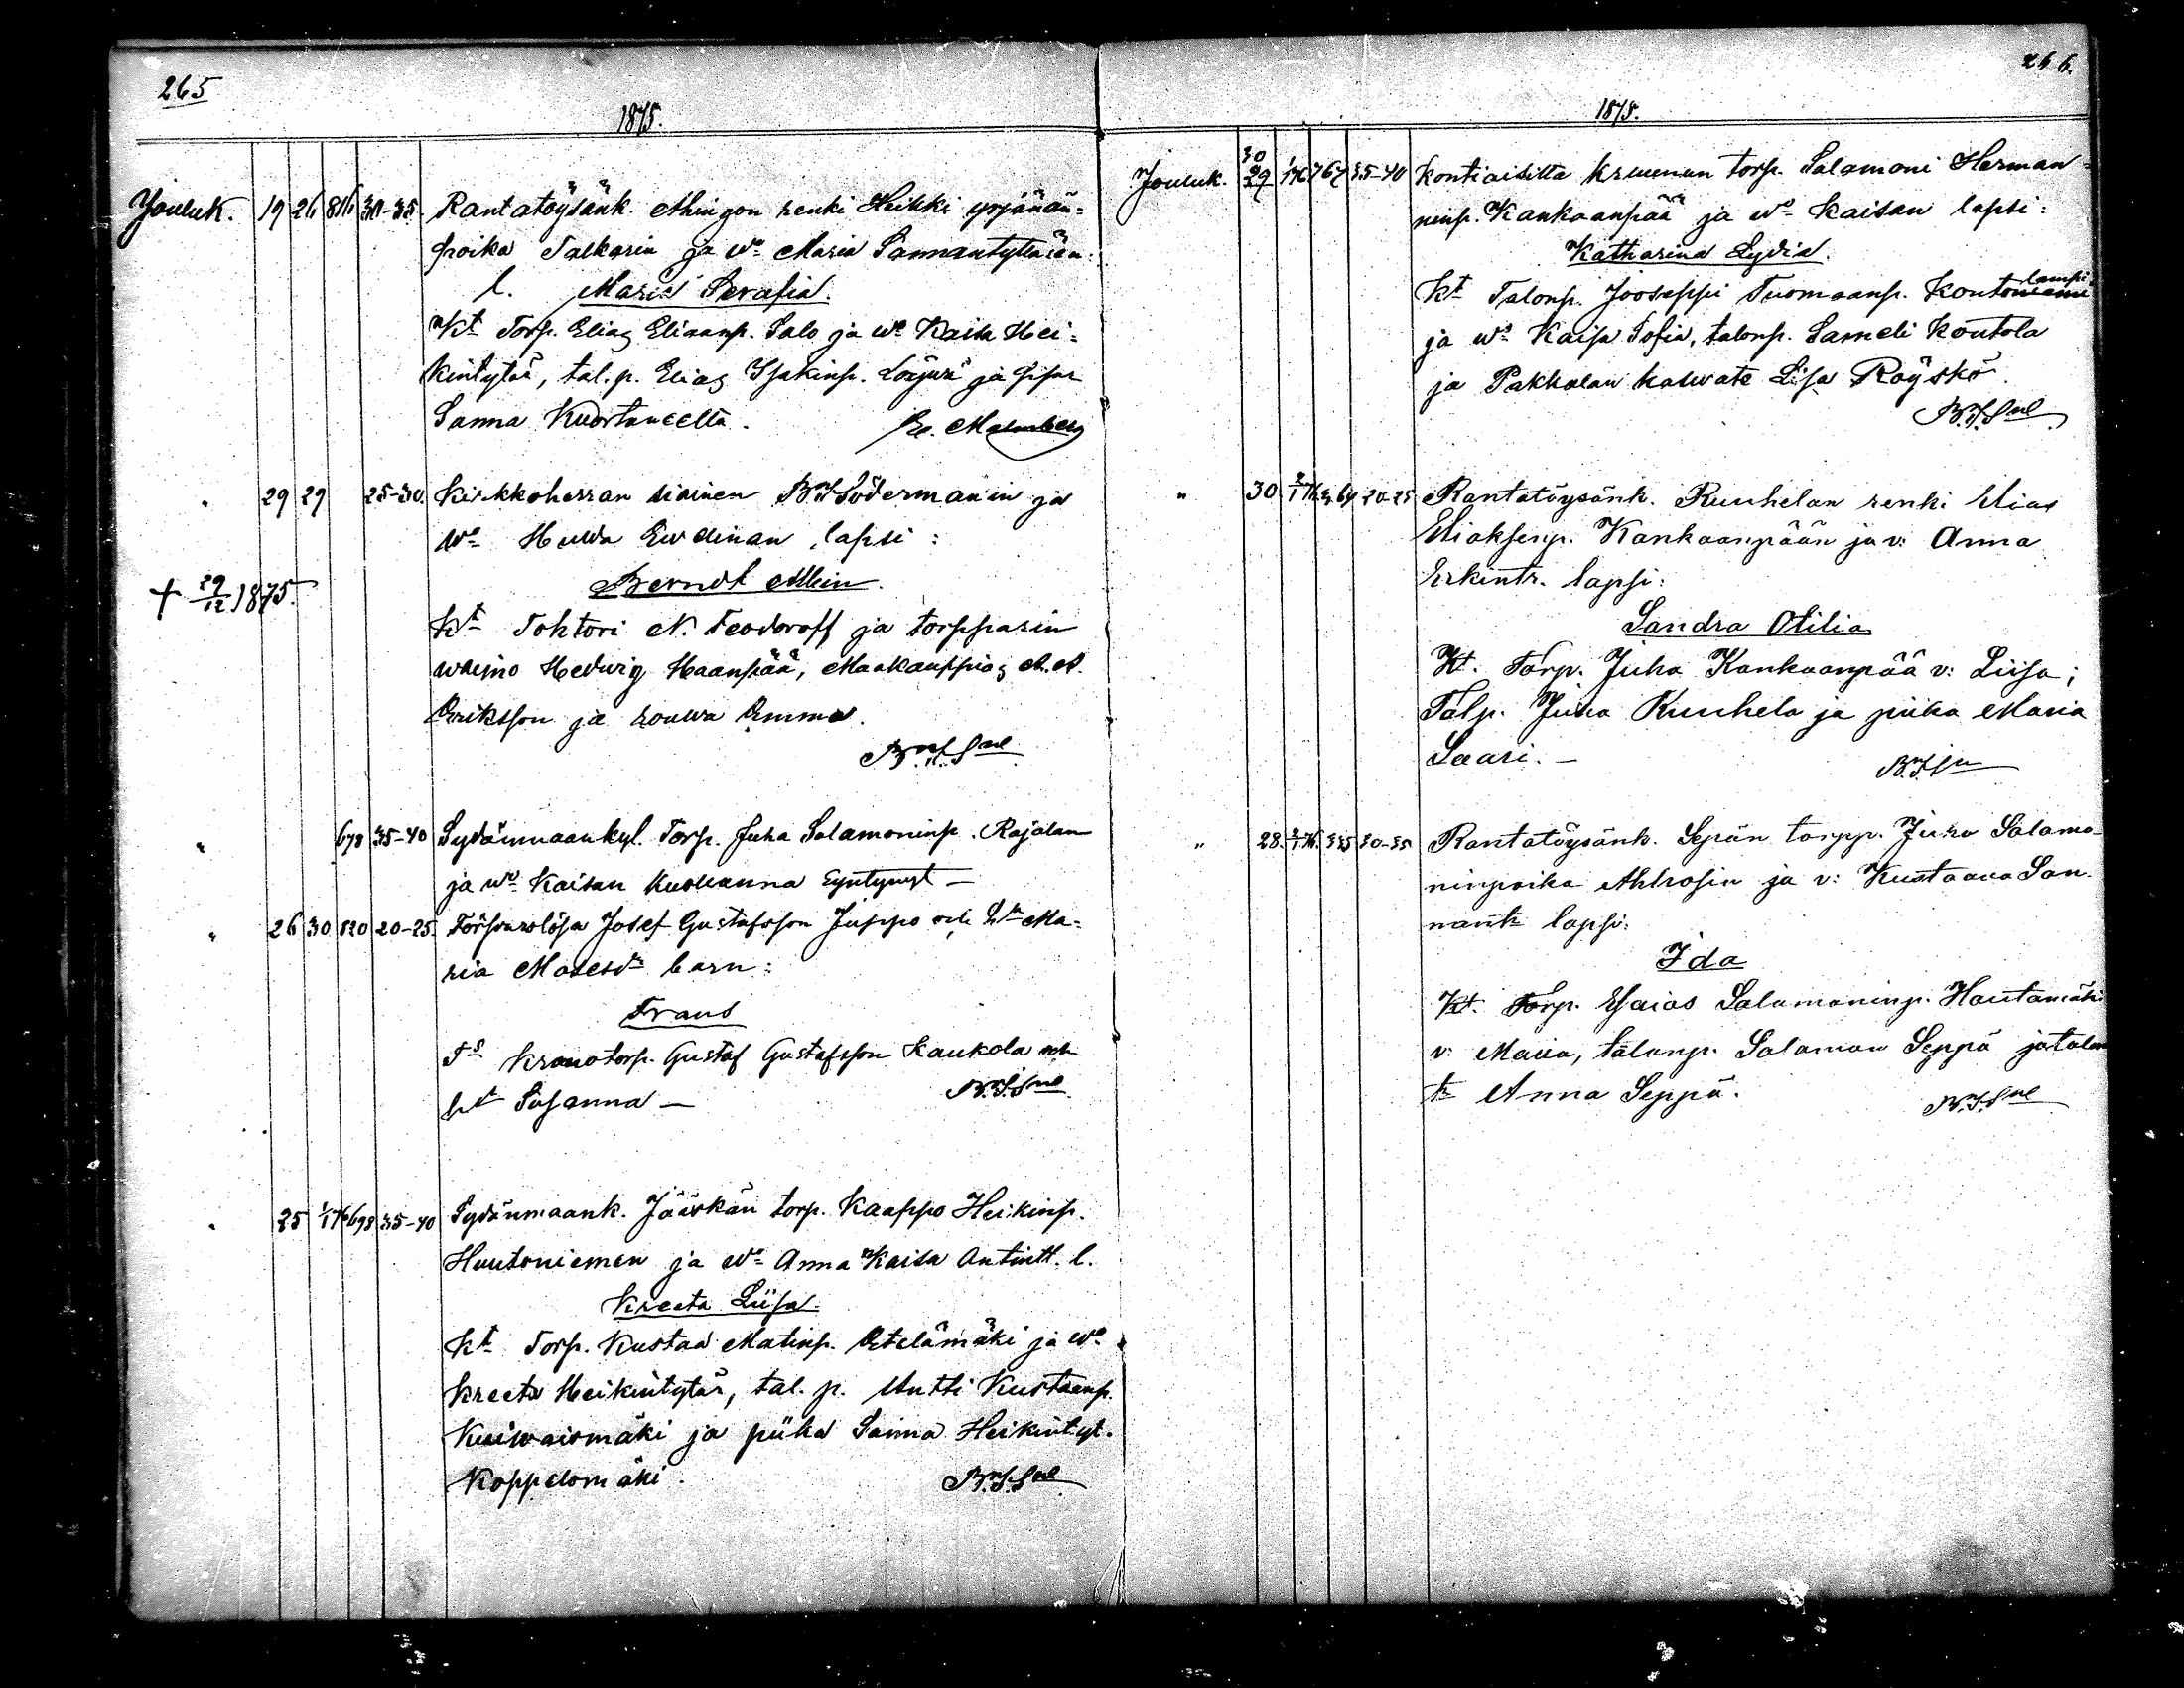 265
1875.
Jouluk. 19 26 816 30-35. Rantatöysänk. Ahingon renki Heikki yrjänän-
poika Talkarin ja wo Maria Sannantyttären
l. Maria Serafia.
Kt Torp. Elias Eliaanp. Salo ja wo Kaisa Hei-
kintytär, tal. p. Elias Isakinp. Löywä ja piika
Sanna Kuortaneelta. Malmberg
" 29 29 25-30. Kirkkoherran siainen Södermanin ja
wo Hulda Ewelinan lapsi:
+ 29/12 1875.
Berndt Alkin.
Kt Tohtori N. Teodoroff ja torpparin
waimo Hedwig Haanpää, Maakauppias A. A.
Eriksson ja rouwa Emma.
" 678 35-40 Sydänmaankyl. Torp. Juha Salamoninp. Rajalan
ja wo Kaisan kuolleanna syntynyt —
" 26 30 820 20-25. Försvarslösa Josef Gustafsson Juppo och h. Ma-
ria Mosesdr barn:
Frans
Ts Kronotorp. Gustaf Gustafsson Kaukola och
ht Susanna —
" 25 1/1 76 698 35-40 Sydänmaank. Jääskän torp. Kaappo Heikinp.
Huutoniemen ja wo Anna Kaisa Antintt. l.
Kreeta Liisa.
Kt Torp. Kustaa Matinp. Etelämäki ja wo
Kreeta Heikintytär, tal. p. Antti Kustaanp.
Kuiwaismäki ja piika Sanna Heikintyt.
Koppelomäki.
266.
1875.
Jouluk. 30 29 1/1 76 767 35-40 Kontiaisilta kruunun torp. Salamoni Herman-
ninp. Kankaanpää ja wo Kaisan lapsi:
Katharina Lydia.
Kt Talonp. Jooseppi Tuomaanp. Kontoniemi
ja wo Kaisa Sofia, talonp. Sameli Kontola
ja Pakkalan kaswate Liisa Röyskö.
" 30 2/1 76 20-25 Rantatöysänk. Ruuhelan renki Elias
Eliaksenp. Kankaanpään ja v: Anna
Erkintr. lapsi:
Sandra Otilia
Kt. Torp. Juha Kankaanpää v: Liisa;
Talp. Juha Ruuhela ja piika Maria
Saari. —
" 28. 2/1 76. 30-35 Rantatöysänk. Sepän torpp. Juho Salamo-
ninpoika Ahlrosin ja v: Kustaava San-
nantr lapsi:
Ida
Kt. Torp. Esaias Salamoninp. Hautamäki
v: Maria, talonp. Salamon Seppä ja talon
tr Anna Seppä.